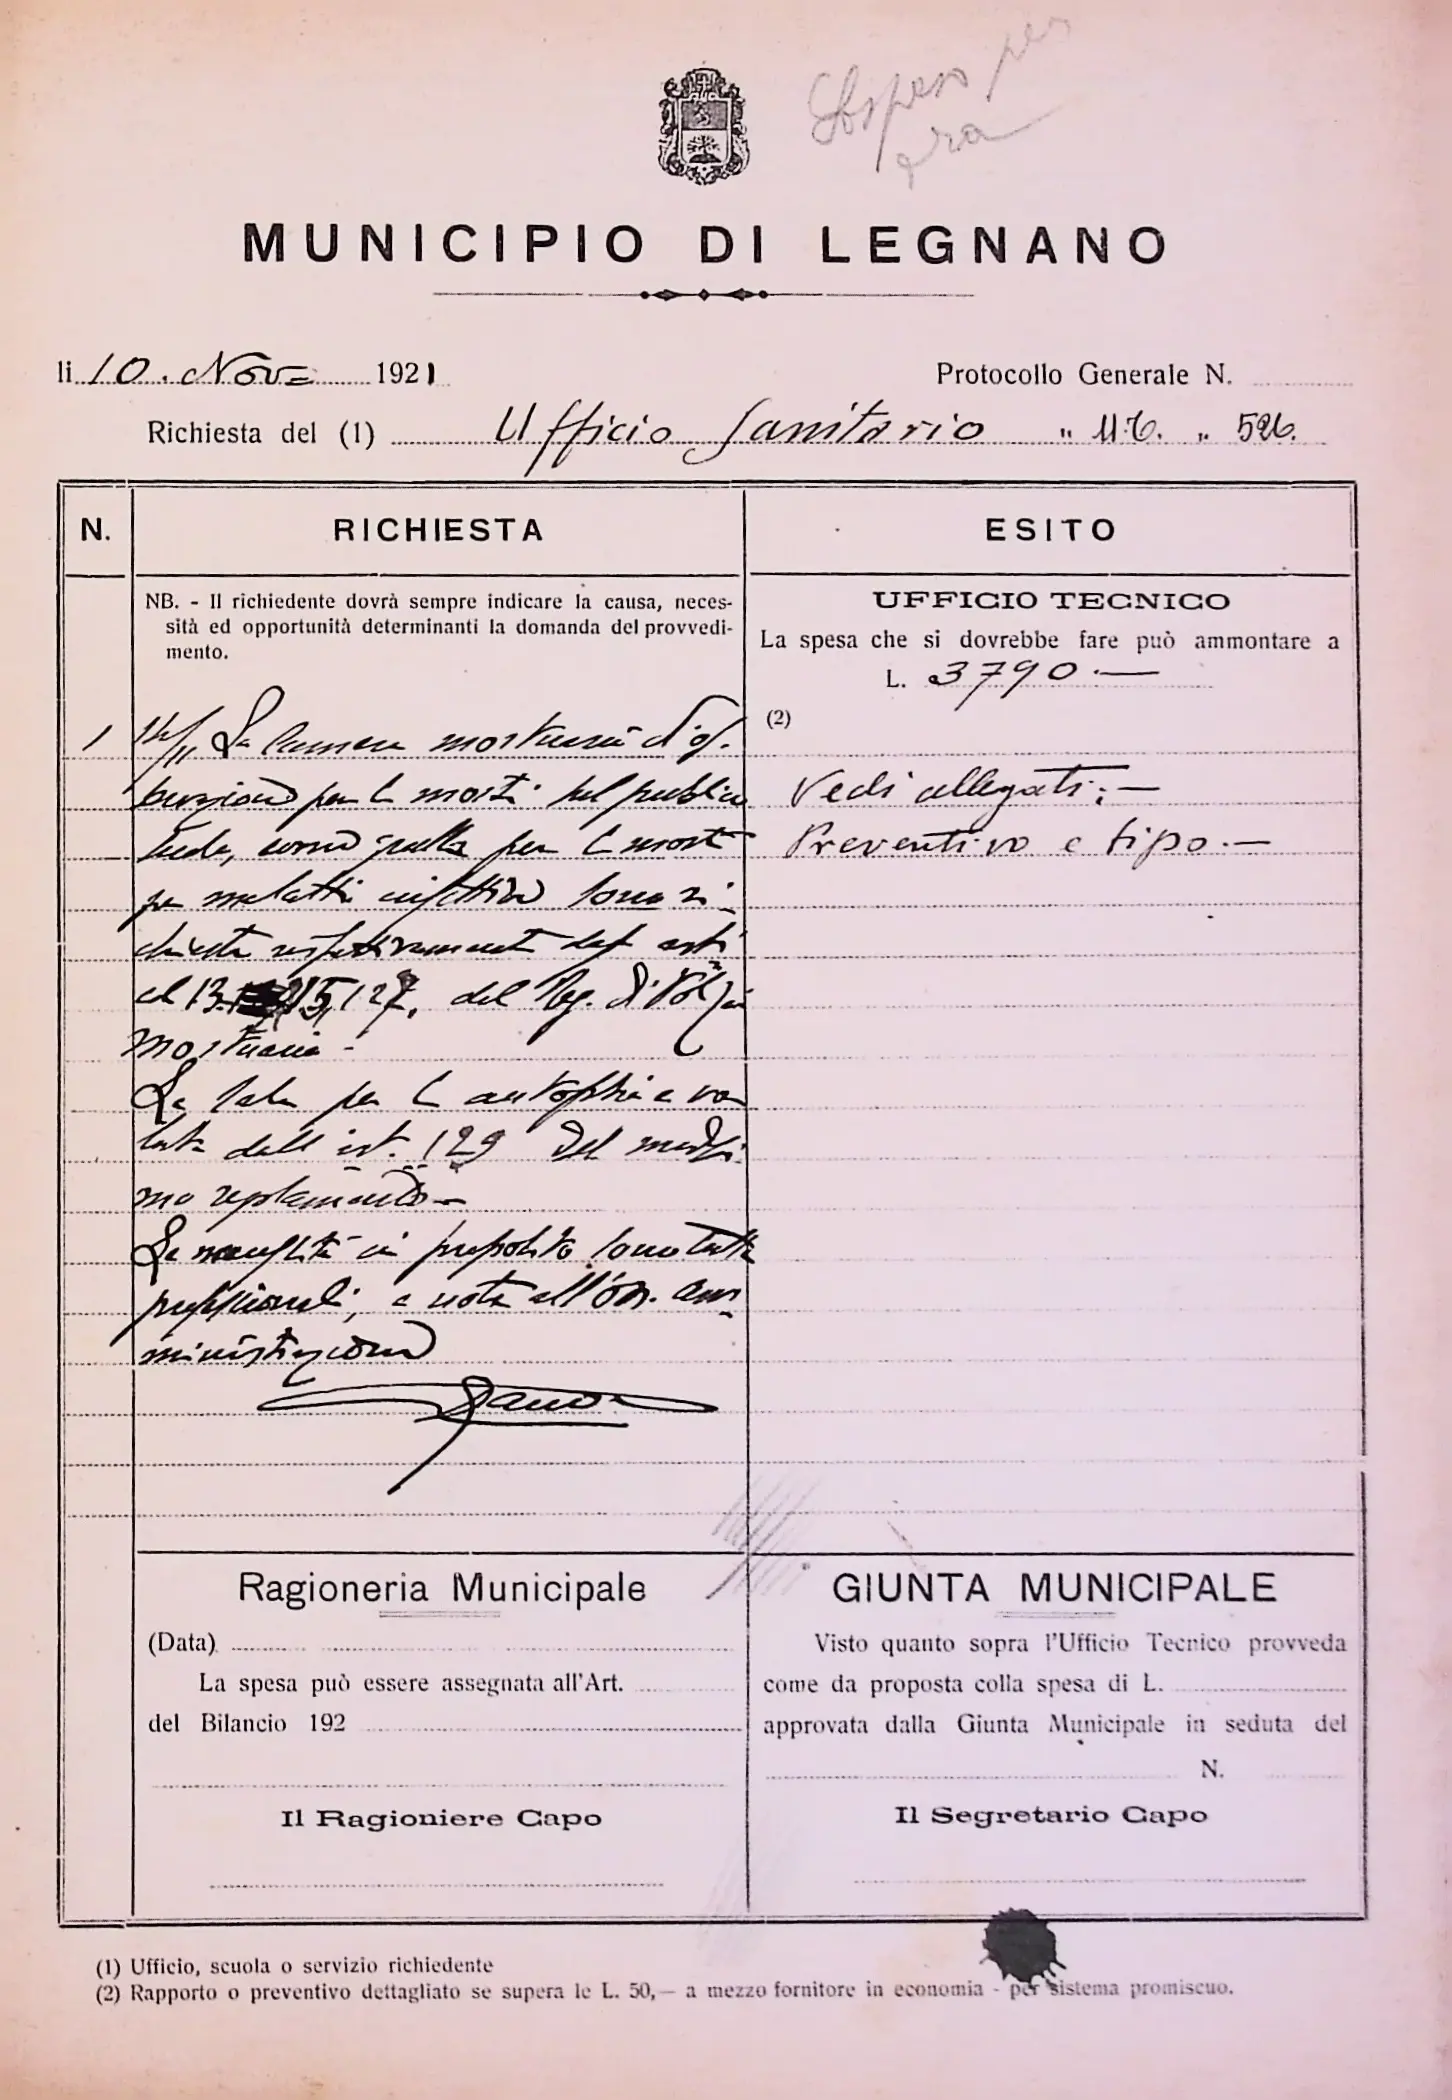 Sospeso per
ora
MUNICIPIO DI LEGNANO
li 10. Nov= 1921 Protocollo Generale N.
Richiesta del (1) Ufficio Sanitario " U.T. " 526.
N. RICHIESTA ESITO
NB. - Il richiedente dovrà sempre indicare la causa, neces-
sità ed opportunità determinanti la domanda del provvedi-
mento.
UFFICIO TECNICO
La spesa che si dovrebbe fare può ammontare a
L. 3790.—
(2)
Vedi allegati:—
Preventivo e tipo.—
1 La camera mortuaria d'os.
servazione per i morti sul pubblico
come quella per i morti
per malattie infettive sono ri-
chieste rispettivamente dagli arti
127, del Reg. di Polizia
Mortuaria -
La sala per le autopsie è vo
luta dall'art. 129 del medesi
mo regolamento—
Le in proposito sono tutte
e note all'On. Am
ministrazione
Ragioneria Municipale
(Data)
La spesa può essere assegnata all'Art.
del Bilancio 192
Il Ragioniere Capo
GIUNTA MUNICIPALE
Visto quanto sopra l'Ufficio Tecnico provveda
come da proposta colla spesa di L.
approvata dalla Giunta Municipale in seduta del
N.
Il Segretario Capo
(1) Ufficio, scuola o servizio richiedente
(2) Rapporto o preventivo dettagliato se supera le L. 50,— a mezzo fornitore in economia - per sistema promiscuo.